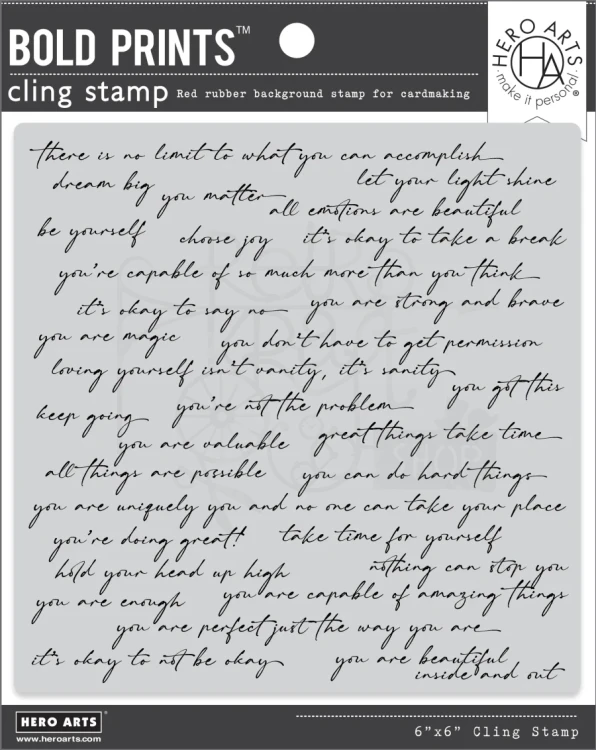 BOLD PRINTS™
cling stamp Red rubber background stamp for cardmaking
HERO ARTS
HA
· make it personal. ®
there is no limit to what you can accomplish
dream big you matter let your light shine
all emotions are beautiful
be yourself choose joy it's okay to take a break
you're capable of so much more than you think
it's okay to say no you are strong and brave
you are magic you don't have to get permission
loving yourself isn't vanity, it's sanity
you got this
keep going you're not the problem
you are valuable great things take time
all things are possible you can do hard things
you are uniquely you and no one can take your place
you're doing great! take time for yourself
hold your head up high nothing can stop you
you are enough you are capable of amazing things
you are perfect just the way you are
it's okay to not be okay you are beautiful
inside and out
HERO ARTS®
www.heroarts.com
6"x6" Cling Stamp